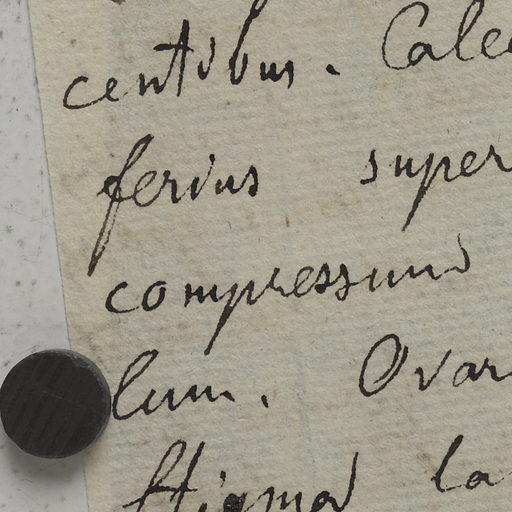 centibus. Calc
ferius super
compressum
lum. Ovar
stigma la